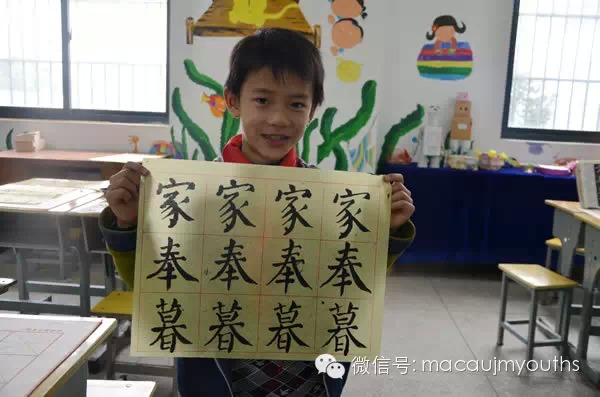 家家家家
奉奉奉奉
暮暮暮暮
微信号: macaujmyouths